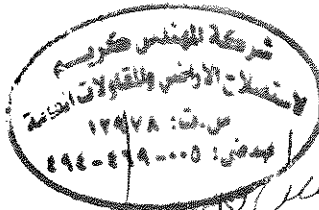 شركة المهندس كريم
لاستصلاح الأراضى والمقاولات العامة
س.ت: ١٢٩٧٨
ب.ض: ٠٠٥-٤٦٩-٤٩٤